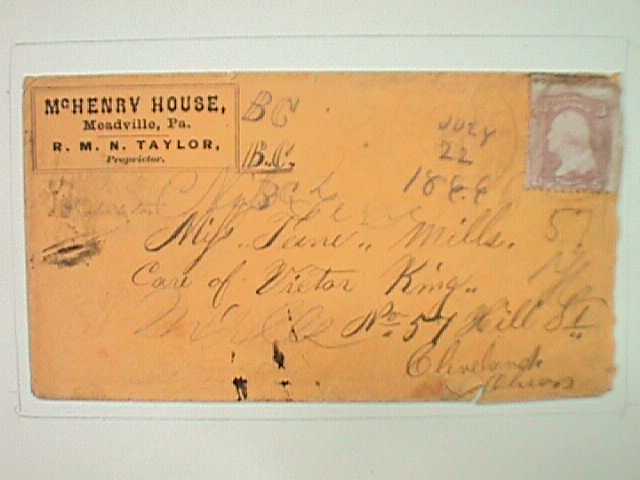 McHENRY HOUSE,
Meadville, Pa.
R. M. N. TAYLOR,
Proprietor.
BC
B.C.
BC
JULY
22
Miss. Jane. Mills.
Care of Victor King.
No. 57 Hill St
Cleveland
57